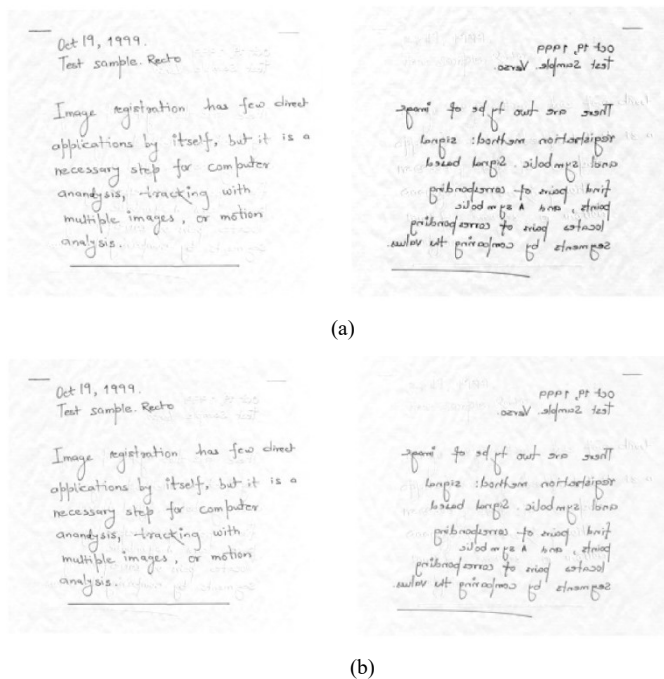 Oct 19, 1999.
Test sample. Recto
Image registration has few direct
applications by itself, but it is a
necessary step for computer
anandysis, tracking with
multiple images, or motion
analysis.
Oct 19, 1999
Test Sample. Verso.
There are two type of image
registration method: signal
and symbolic. Signal based
find pairs of corresponding
points, and A symbolic
locates pairs of corresponding
segments by comparing the
(a)
Oct 19, 1999.
Test sample. Recto
Image registration has few direct
applications by itself, but it is a
necessary step for computer
anandysis, tracking with
multiple images, or motion
analysis.
Oct 19, 1999
Test Sample. Verso.
There are two type of image
registration method: signal
and symbolic. Signal based
find pairs of corresponding
points, and A symbolic
locates pairs of corresponding
segments by comparing the
(b)